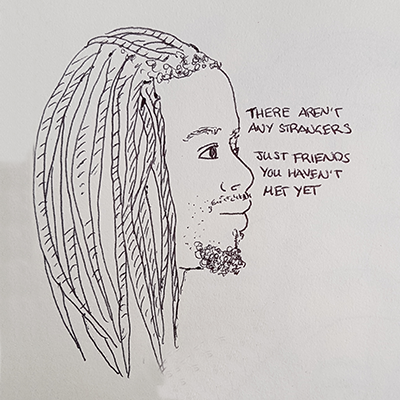 THERE AREN'T
ANY STRANGERS
JUST FRIENDS
YOU HAVEN'T
MET YET